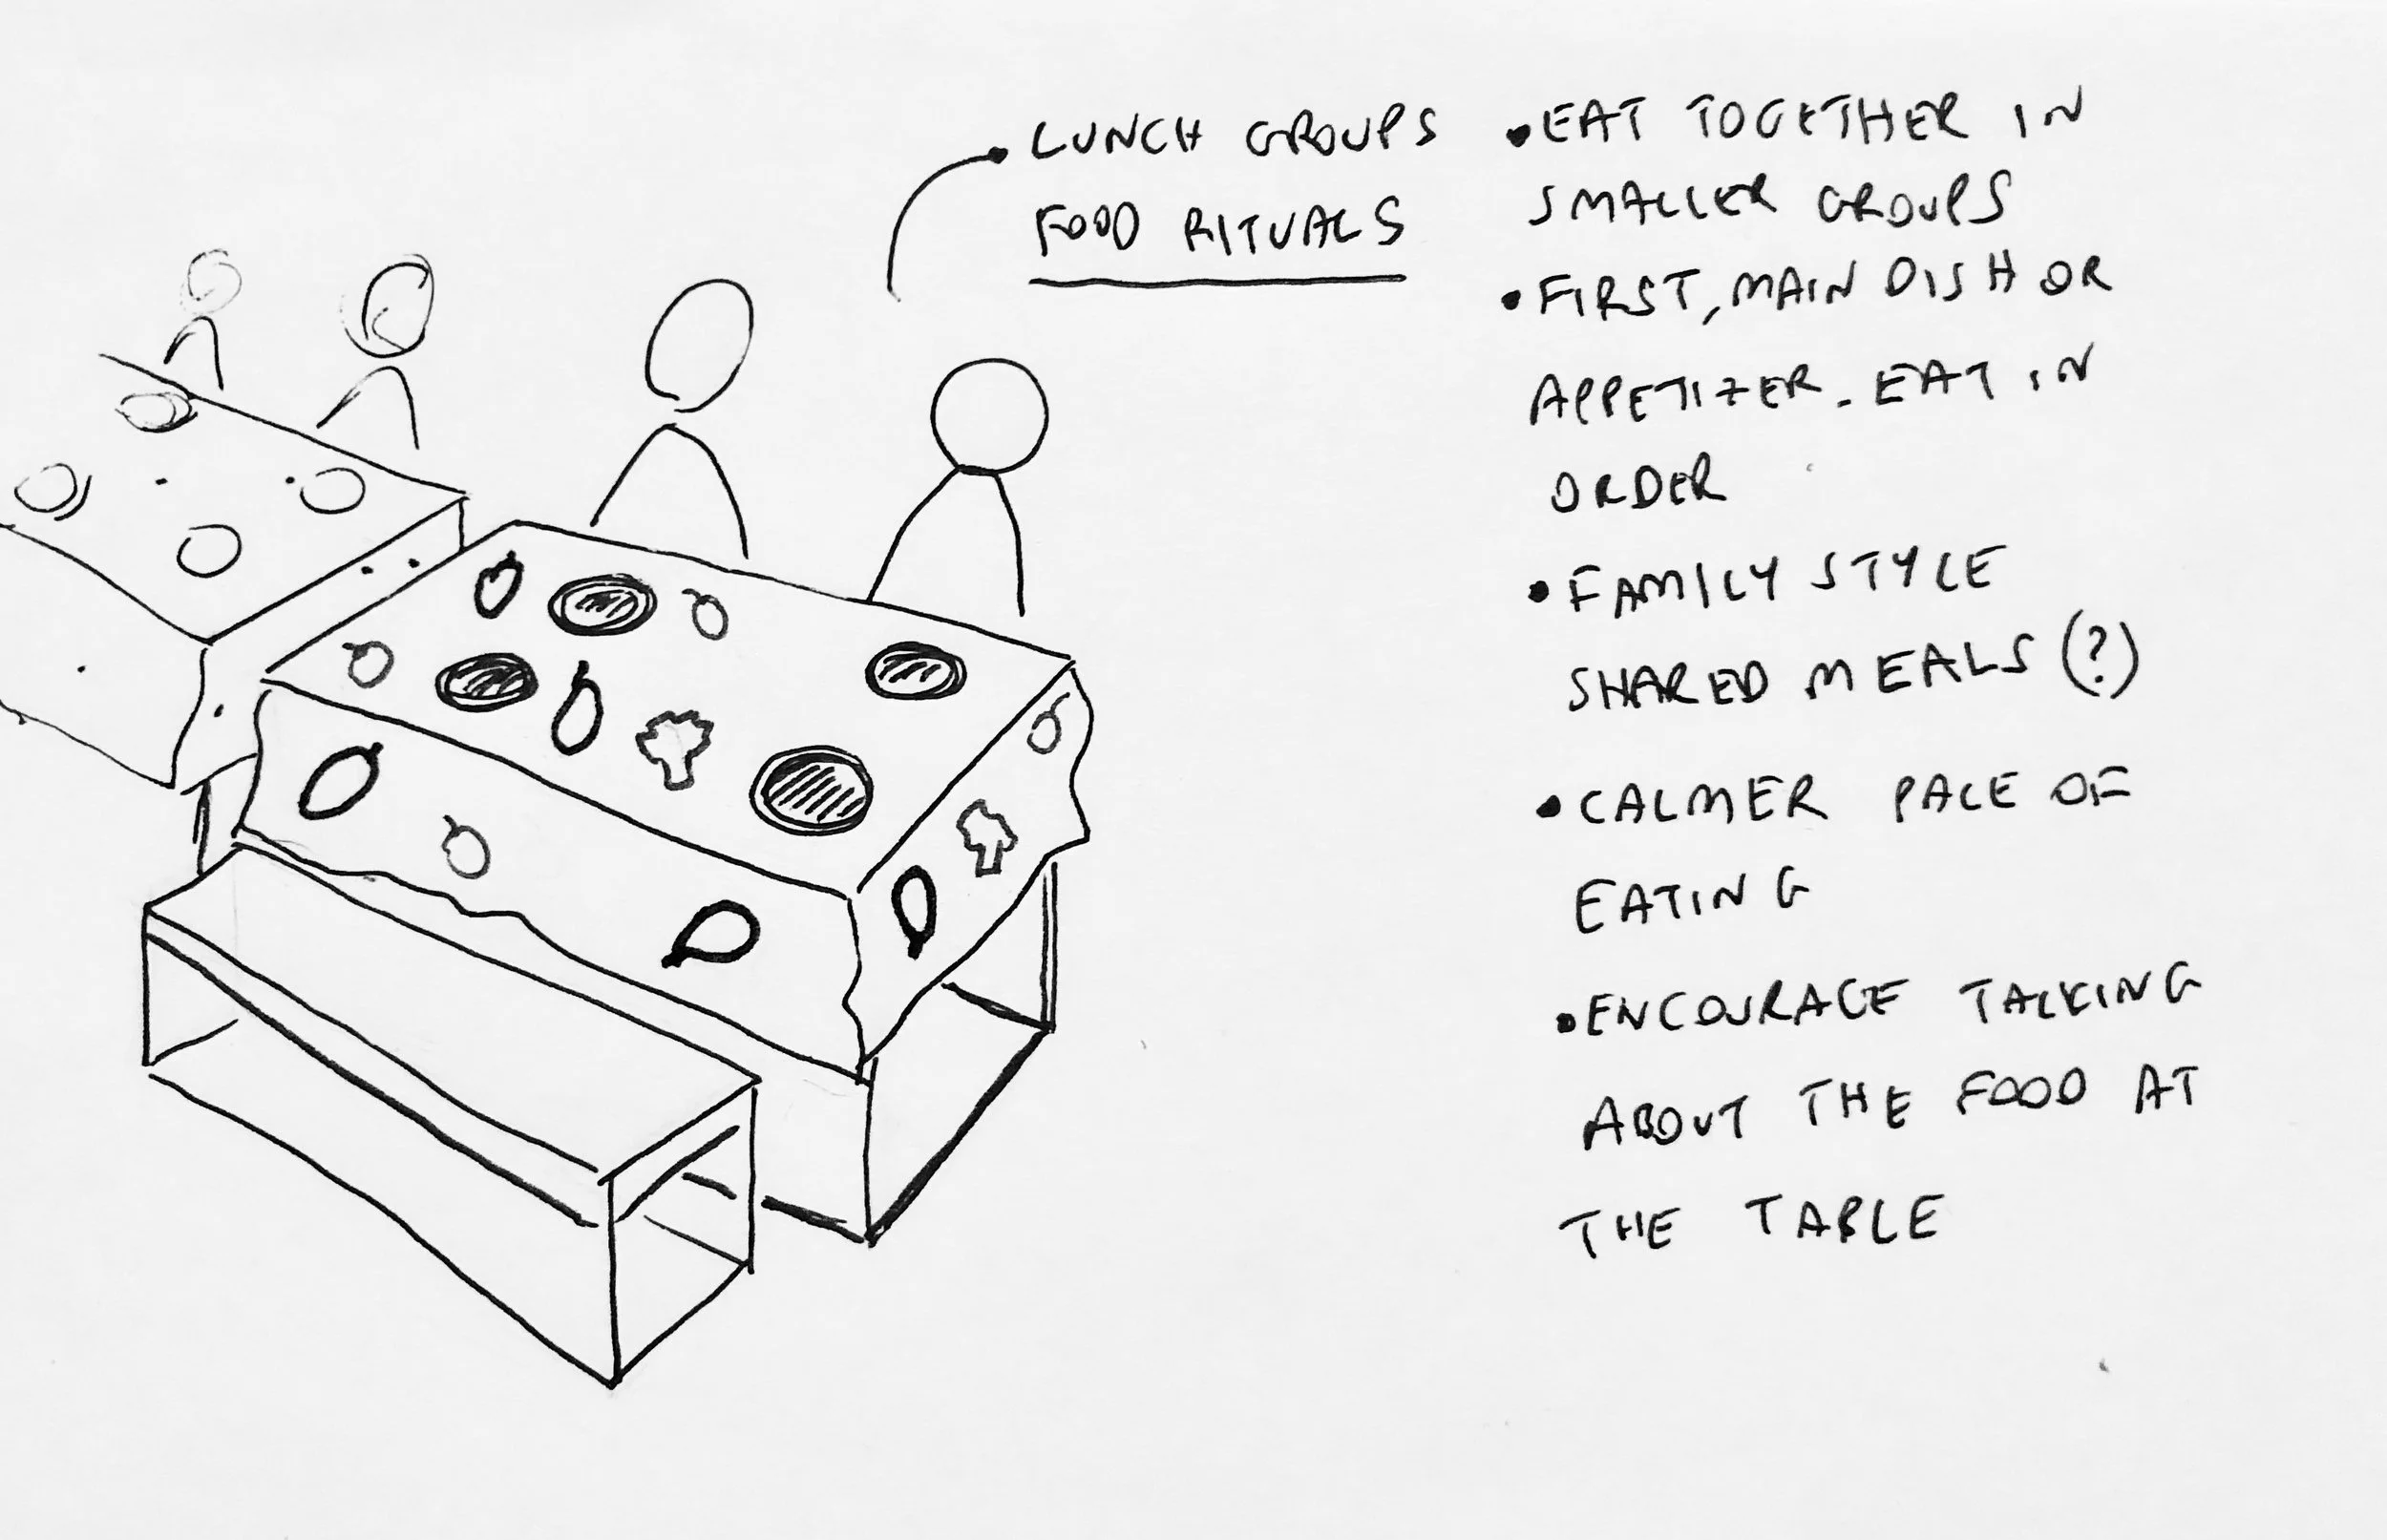 • LUNCH GROUPS
FOOD RITUALS
• EAT TOGETHER IN
SMALLER GROUPS
• FIRST, MAIN DISH OR
APPETIZER. EAT IN
ORDER
• FAMILY STYLE
SHARED MEALS (?)
• CALMER PACE OF
EATING
• ENCOURAGE TALKING
ABOUT THE FOOD AT
THE TABLE